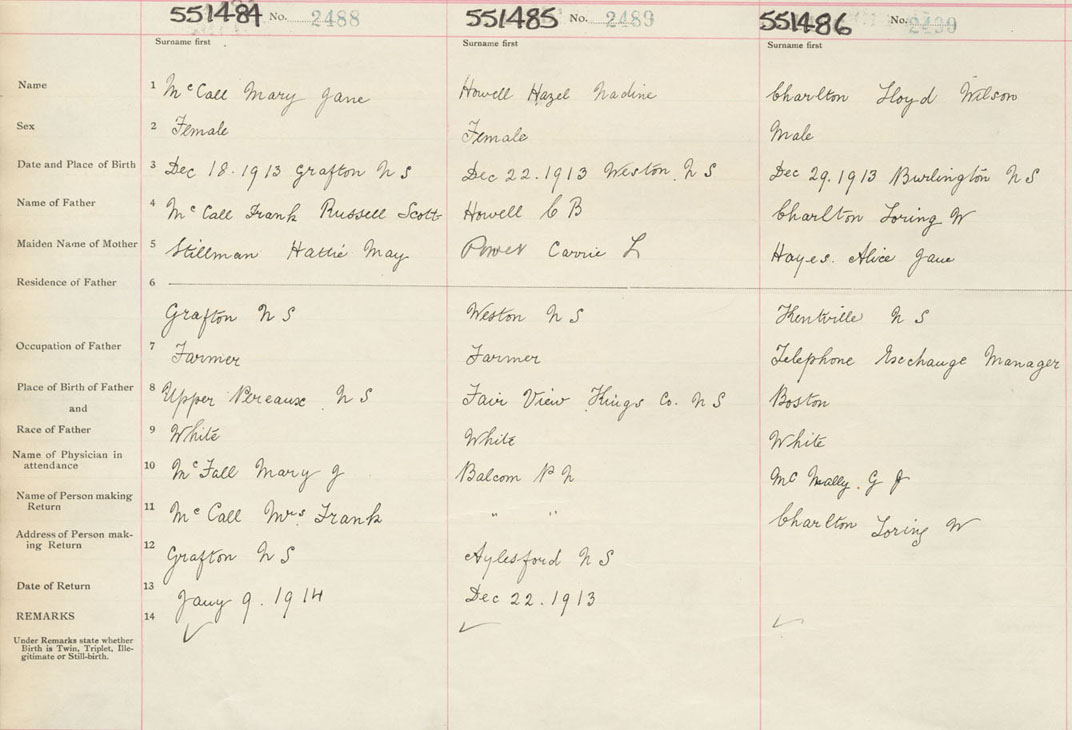 551484 No. 2488 551485 No. 2489 551486 No. 2490
Surname first Surname first Surname first
Name 1 McCall Mary Jane Howell Hazel Nadine Charlton Lloyd Wilson
Sex 2 Female Female Male
Date and Place of Birth 3 Dec 18. 1913 Grafton N S Dec 22. 1913 Weston. N S Dec 29. 1913 Burlington N S
Name of Father 4 McCall Frank Russell Scott Howell C B Charlton Loring W
Maiden Name of Mother 5 Stillman Hattie May Power Carrie L Hayes. Alice Jane
Residence of Father 6
Grafton N S Weston N S Kentville N S
Occupation of Father 7 Farmer Farmer Telephone Exchange Manager
Place of Birth of Father 8 Upper Pereaux N S Fair View Kings Co. N S Boston
and
Race of Father 9 White White White
Name of Physician in
attendance 10 McFall Mary J Balcom P N McNally. G J
Name of Person making
Return 11 McCall Mrs Frank " " Charlton Loring W
Address of Person mak-
ing Return 12 Grafton N S Aylesford N S
Date of Return 13 Jany 9. 1914 Dec 22. 1913
REMARKS 14 ✓ ✓ ✓
Under Remarks state whether
Birth is Twin, Triplet, Ille-
gitimate or Still-birth.